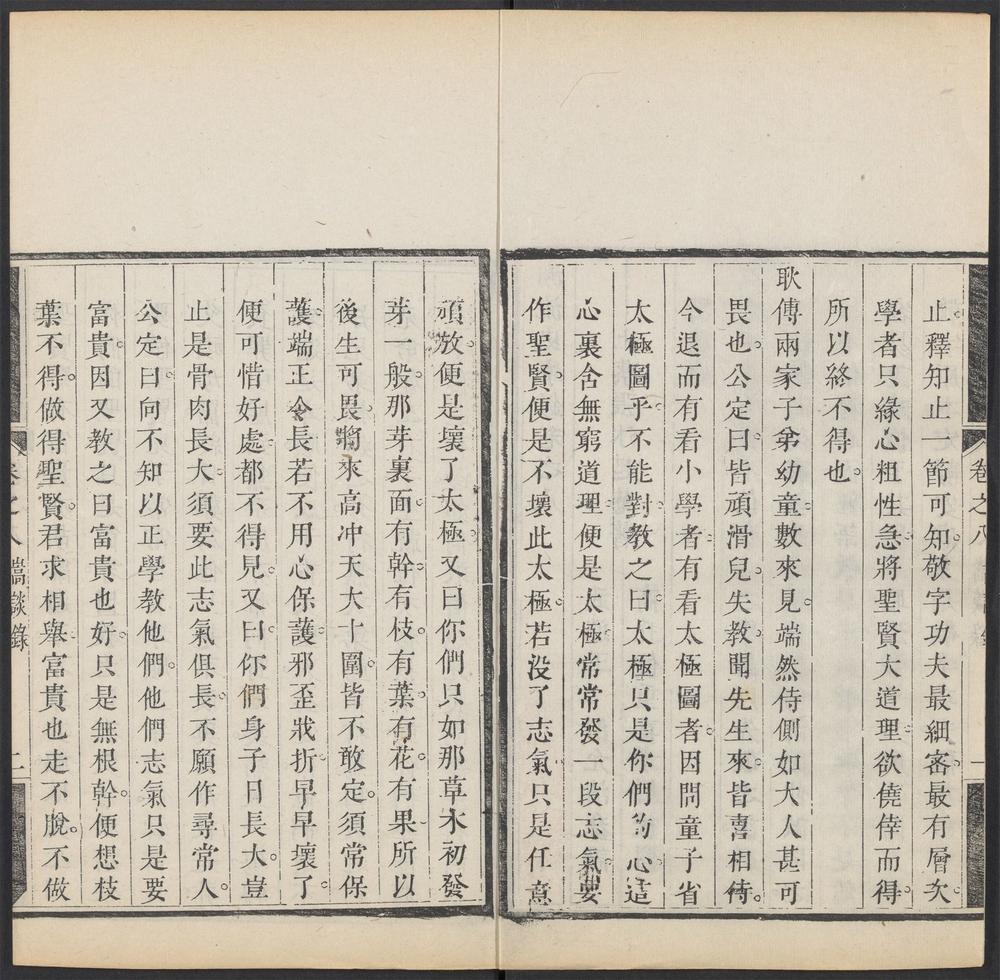 卷之八
一
止釋知止一節可知敬字功夫最細審最有層次
學者只緣心粗性急將聖賢大道理欲僥倖而得
所以終不得也
耿傳兩家子弟幼童數來見端然侍側如大人甚可
畏也公定曰皆頑滑兒失教聞先生來皆喜相待
今退而有看小學者有看太極圖者因問童子省
太極圖乎不能對教之曰太極只是你們的心這
心裏含無窮道理便是太極常常發一段志氣要
作聖賢便是不壞此太極若没了志氣只是任意
頑放便是壞了太極又曰你們只如那草木初發
芽一般那芽裏面有幹有枝有葉有花有果所以
後生可畏將來高冲天大十圍皆不敢定須常保
護端正令長若不用心保護邪歪戕折早早壞了
便可惜好處都不得見又曰你們身子日長大豈
止是骨肉長大須要此志氣俱長不願作尋常人
公定曰向不知以正學教他們他們志氣只是要
富貴因又教之曰富貴也好只是無根幹便想枝
葉不得做得聖賢君求相舉富貴也走不脫不做
卷之八 談錄
二